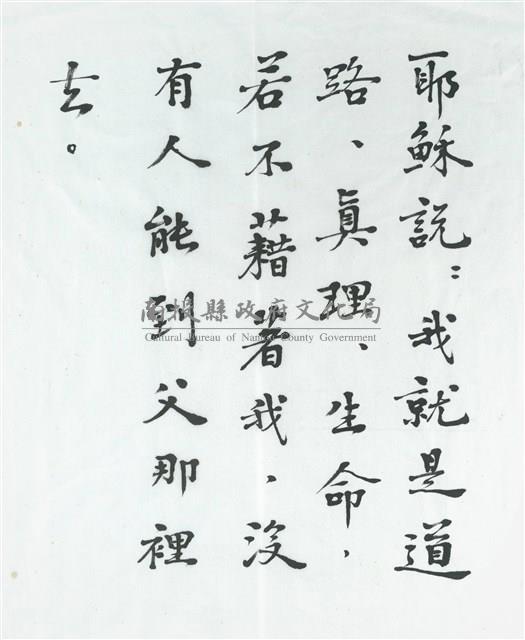 耶穌說:我就是道
路、真理、生命,
若不藉著我,沒
有人能到父那裡
去。
南投縣政府文化局
Cultural Bureau of Nantou County Government